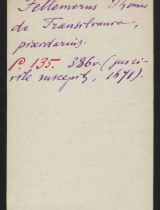 Fellemerus Thomas
de Transilvania,
pixidarius.
P. 135. 386v. (jus ci-
vile suscepit, 1671).